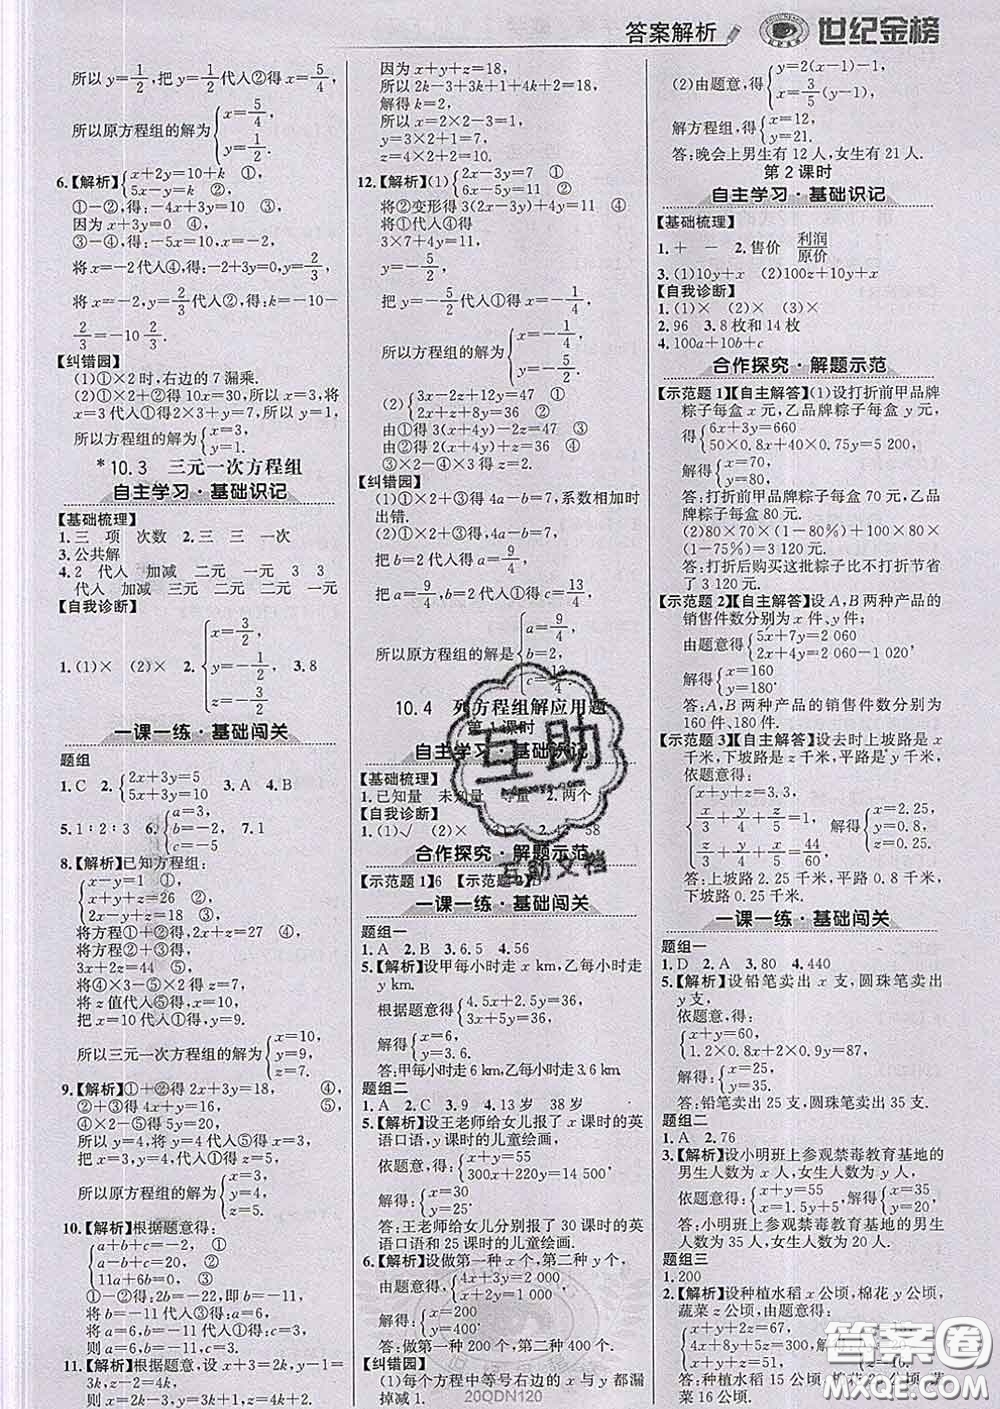 答案解析
世纪金榜
所以y=1/2,把y=1/2代人②得x=5/4
所以原方程组的解为{x=5/4, y=1/2.
6.【解析】{x+2y=10+k ① 5x-y=k ②
①-②,得:-4x+3y=10 ③
因为x+3y=0 ④
③-④,得:-5x=10,x=-2
将x=-2代人④,得:-2+3y=0,y=2/3
将x=-2,y=2/3代人②,得:k=-10-
2/3=-10 2/3.
【纠错园】
(1)①×2时,右边的7漏乘.
(2)①×2+②得:10x=30,所以x=3,将
x=3代人①得2×3+y=7,所以y=1,
所以方程组的解为{x=3, y=1.
*10.3 三元一次方程组
自主学习·基础识记
【基础梳理】
1.三 项 次数 2.三 三 一次
3.公共解
4.2 代人 加减 二元 一元 3 3
代人 加减 三元 二元 二元 一元
【自我诊断】
1.(1)× (2)× 2.{x=3/2, y=-1/2, z=-5/2 3.8
一课一练·基础闯关
题组
1.C 2.{2x+3y=5 5x+3y=10 3.A 4.B
5.1∶2∶3 6.{a=3, b=-2, c=-5 7.1
8.【解析】已知方程组:
{x-y=1 ① x+y+z=26 ② 2x-y=18 ③
将方程①+②得,2x+z=27 ④
将方程②+③得,
3x+z=44 ⑤
将④×3-⑤×2得z=-7
将z值代人⑤得:x=10,
将x代人①得:y=9.
所以三元一次方程组的解为{x=10, y=9, z=7.
9.【解析】①+②得2x+3y=18, ④
②+③得4x+y=16, ⑤
④×2-⑤得5y=20,
所以y=4,将y=4代人⑤得x=3,
将x=3,y=4代人①得z=5,
所以原方程组的解为{x=3, y=4, z=5.
10.【解析】根据题意得:
{a+b+c=-2 ① a-b+c=20 ② 11a+6b=0 ③
①-②得:-2b=22,即b=-11,
将b=-11代人③得:a=6,
将a=6,b=-11代人①得:c=3,
则a=6,b=-11,c=3.
11.【解析】根据题意,设x+3=2k,y-1=
3k,z=4k,则x=2k-3,y=3k+1,
因为x+y+z=18,
所以2k-3+3k+1+4k+2=18,
解得k=2,
所以x=2×2-3=1,
y=3×2+1=7,
z=4×2+2=10.
12.【解析】(1){2x-3y=7 ① 6x-5y=11 ②
将②变形得3(2x-3y)+4y=11 ③
将①代人③得
3×7+4y=11,
解得y=-5/2,
把y=-5/2代人①得x=-1/4,
所以方程组的解为{x=-1/4, y=-5/2.
(2){3x-2z+12y=47 ① 2x+z+8y=36 ②
由①得3(x+4y)-2z=47 ③
由②得2(x+4y)+z=36 ④
③×2-④×3得z=2.
【纠错园】
(1)①×2+③得4a-b=7,系数相加时
出错.
(2)①×2+③得,4a-b=7,
把b=2代人得a=9/4,
把a=9/4,b=2代人①得c=13/4,
所以原方程组的解是{a=9/4, b=2, c=13/4.
10.4 列方程组解应用题
第1课时
自主学习·基础识记
【基础梳理】
1.已知量 未知量 等量 2.两个
【自我诊断】
1.(1)√ (2)× 58
合作探究·解题示范
【示范题1】6 【示范题2】
一课一练·基础闯关
题组一
1.A 2.B 3.6.5 4.56
5.【解析】设甲每小时走x km,乙每小时走
y km.
根据题意得{4.5x+2.5y=36, 3x+5y=36,
解得{x=6, y=3.6.
答:甲每小时走6 km,乙每小时走3.6 km.
题组二
1.A 2.C 3.9 4.13岁 38岁
5.【解析】设王老师给女儿报了x课时的英
语口语,y课时的儿童绘画,
依题意,得:{x+y=55 300x+220y=14 500
解得:{x=30, y=25.
答:王老师给女儿分别报了30课时的英
语口语和25课时的儿童绘画.
6.【解析】设做第一种x个,第二种y个,
由题意得,{4x+3y=2 000, x+2y=1 000,
解得{x=200 y=400.
答:做第一种200个,第二种400个.
【纠错园】
(1)每个方程中等号右边的x与y都漏
掉减1.
20QDN120
(2)由题意得{y=2(x-1)-1, x=3/5(y-1),
解方程组,得{x=12, y=21.
答:晚会上男生有12人,女生有21人.
第2课时
自主学习·基础识记
【基础梳理】
1.+ - 2.售价 利润/原价
3.(1)10y+x (2)100z+10y+x
【自我诊断】
1.(1)× (2)× (3)×
2.96 3.8枚和14枚
4.100a+10b+c
合作探究·解题示范
【示范题1】【自主解答】(1)设打折前甲品牌
粽子每盒x元,乙品牌粽子每盒y元,
{6x+3y=660 50×0.8x+40×0.75y=5 200,
解得{x=70, y=80.
答:打折前甲品牌粽子每盒70元,乙品
牌粽子每盒80元.
(2)80×70×(1-80%)+100×80×
(1-75%)=3 120元.
答:打折后购买这批粽子比不打折节省
了3 120元.
【示范题2】【自主解答】设A,B两种产品的
销售件数分别为x件,y件;
由题意得{5x+7y=2 060 2x+4y=1 020,
解得{x=160 y=180.
答:A,B两种产品的销售件数分别为
160件、180件.
【示范题3】【自主解答】设去时上坡路是x
千米,下坡路是z千米,平路是y千米,
依题意得:
{x+y+z=3.3, x/3+y/4+z/5=1 x/5+y/4+z/3=44/60 解得{x=2.25, y=0.8, z=0.25.
答:上坡路2.25千米,平路0.8千米,
下坡路0.25千米.
一课一练·基础闯关
题组一
1.D 2.A 3.80 4.440
5.【解析】设铅笔卖出x支,圆珠笔卖出
y支.
依题意,得:
{x+y=60, 1.2×0.8x+2×0.9y=87,
解得{x=25, y=35.
答:铅笔卖出25支,圆珠笔卖出35支.
题组二
1.A 2.76
3.【解析】设小明班上参观禁毒教育基地的
男生人数为x人,女生人数为y人,
依题意得:{x+y=55 x=1.5y+5,解得{x=35 y=20.
答:小明班上参观禁毒教育基地的男生
人数为35人,女生人数为20人.
题组三
1.200
2.【解析】设种植水稻x公顷,棉花y公顷,
蔬菜z公顷,
答:种植水稻15公顷,棉花20公顷,蔬
菜16公顷.
互助
互助文档
答案圈
MXQE.COM